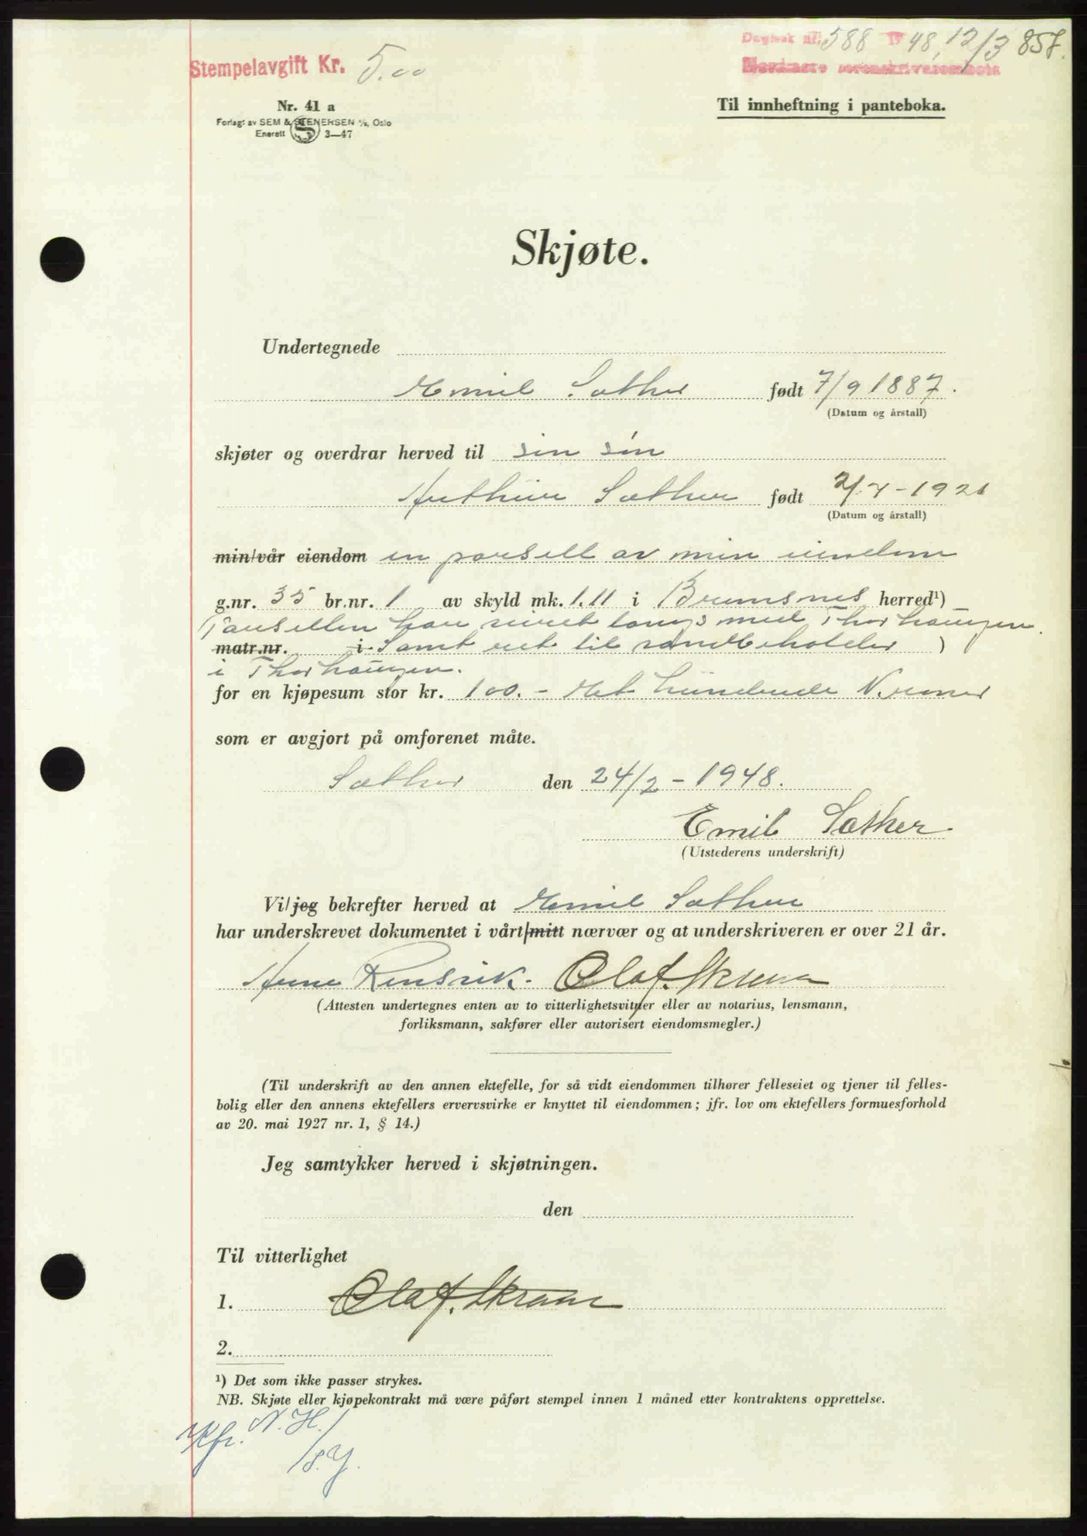 Dagbok nr. 588 1948, 12/3 857.
Nordmøre sorenskriverembete
Stempelavgift Kr. 5.00
Nr. 41 a
Forlagt av SEM & STENERSEN A/S, Oslo
Enerett S 3—47
Til innheftning i panteboka.
Skjøte.
Undertegnede
Emil Sæther født 7/9 1887.
(Datum og årstall)
skjøter og overdrar herved til sin søn
Arthur Sæther født 2/7-1921
(Datum og årstall)
min/vår eiendom en parsell av min eiendom
g.nr. 35 br.nr. 1 av skyld mk. 1.11 i Bremsnes herred¹)
Parsellen har navnet med Thorhaugen
matr.nr. i Samt ret til )
i Thorhaugen.
for en kjøpesum stor kr. 100.- Et hundrede Kroner
som er avgjort på omforenet måte.
Sæther den 24/2-1948.
Emil Sæther
(Utstederens underskrift)
Vi/jeg bekrefter herved at Emil Sæther
har underskrevet dokumentet i vårt/mitt nærvær og at underskriveren er over 21 år.
Arne Rensvik. Olaf. Skram
(Attesten undertegnes enten av to vitterlighetsvitner eller av notarius, lensmann,
forliksmann, sakfører eller autorisert eiendomsmegler.)
(Til underskrift av den annen ektefelle, for så vidt eiendommen tilhører felleseiet og tjener til felles-
bolig eller den annens ektefellers ervervsvirke er knyttet til eiendommen; jfr. lov om ektefellers formuesforhold
av 20. mai 1927 nr. 1, § 14.)
Jeg samtykker herved i skjøtningen.
den
Til vitterlighet
1. Olaf. Skram
2.
¹) Det som ikke passer strykes.
NB. Skjøte eller kjøpekontrakt må være påført stempel innen 1 måned etter kontraktens opprettelse.
N. H.